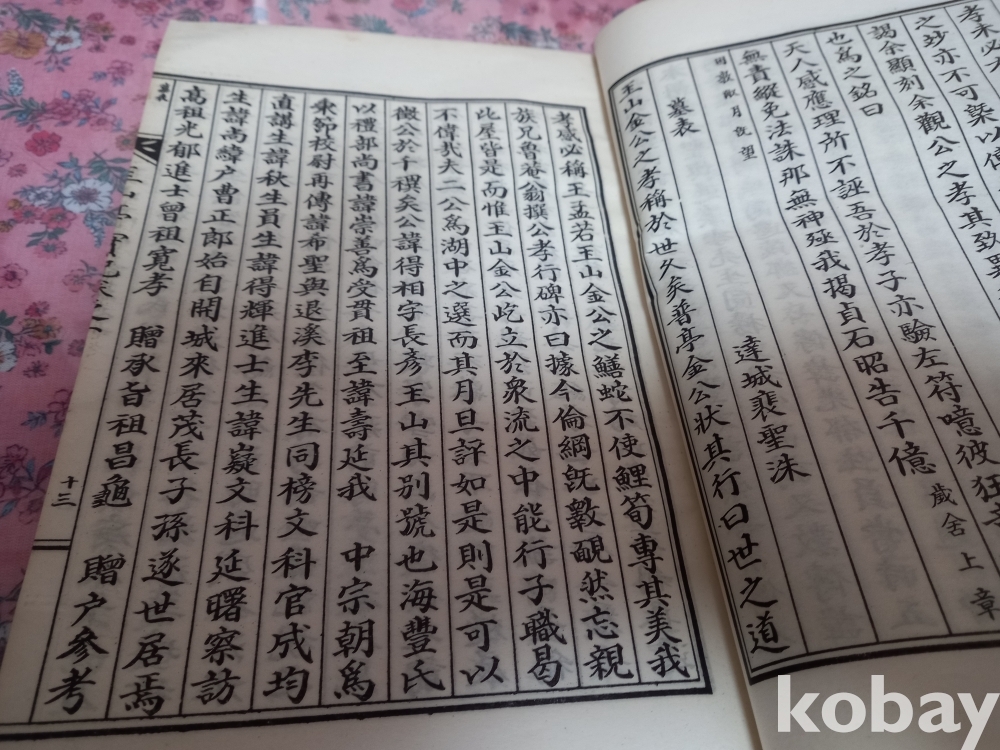 孝未必
之妙亦不可槩以傳
謁余顯刻余觀公之孝其致
也爲之銘曰
天人感應理所不誣吾於孝子亦驗左符噫彼狂
無責縱免法誅那無神殛我揭貞石昭告千億
歲舍上章
月旣望
達城裵聖洙
墓表
玉山金公之孝稱於世久矣普亭金公狀其行曰世之道
孝感必稱王孟若玉山金公之鱔蛇不使鯉筍專其美我
族兄魯菴翁撰公孝行碑亦曰據今倫綱旣斁覥然忘親
比屋皆是而惟玉山金公屹立於衆流之中能行子職曷
不偉哉夫二公爲湖中之選而其月旦評如是則是可以
徵公於千禩矣公諱得相字長彦玉山其別號也海豐氏
以禮部尚書諱崇善爲受貫祖至諱壽延我 中宗朝爲
秉節校尉再傳諱希聖與退溪李先生同榜文科官成均
直講生諱秋生員生諱得輝進士生諱嶷文科延曙察訪
生諱尚緯户曹正郎始自開城來居茂長子孫遂世居焉
高祖光郁進士曾祖寬孝 贈承旨祖昌龜 贈户參考
墓表
十三
kobay